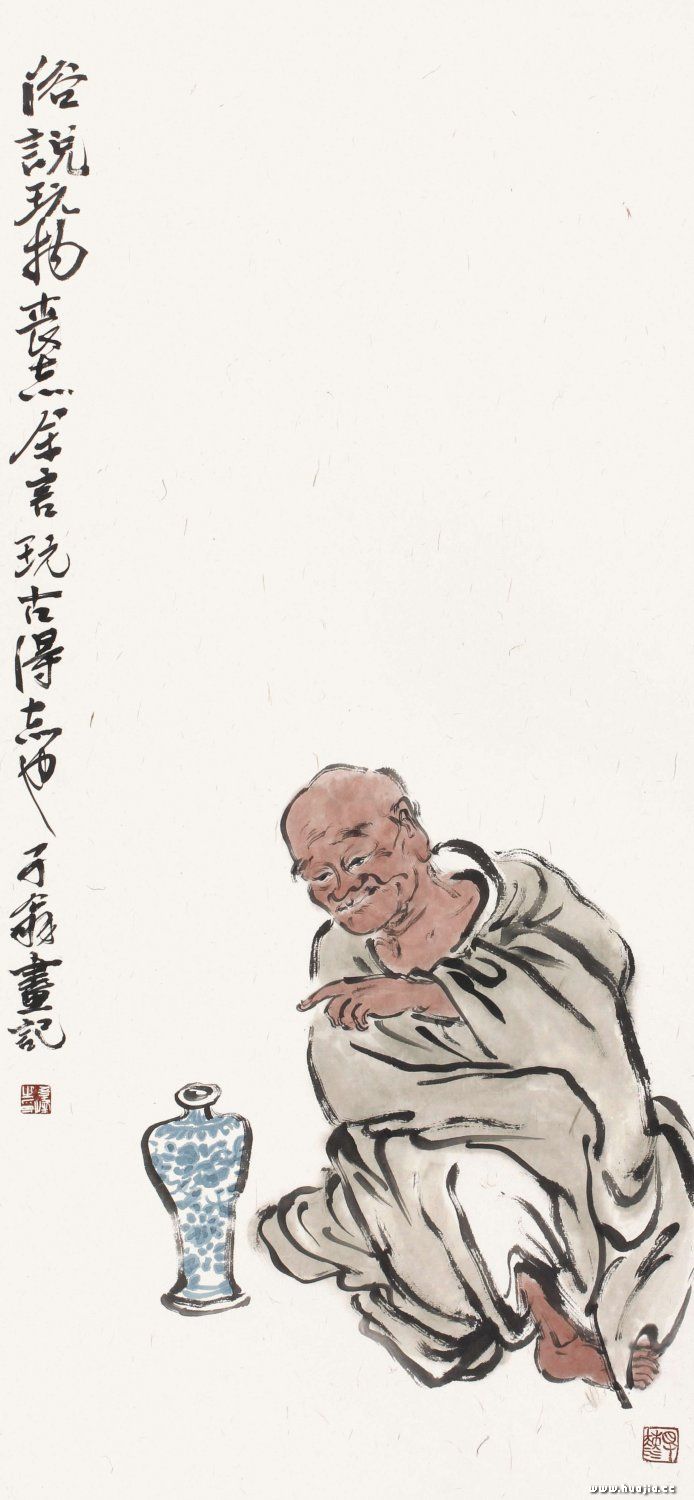 俗說玩物喪志余言玩古得志也 子彝畫記
www.huajia.cc